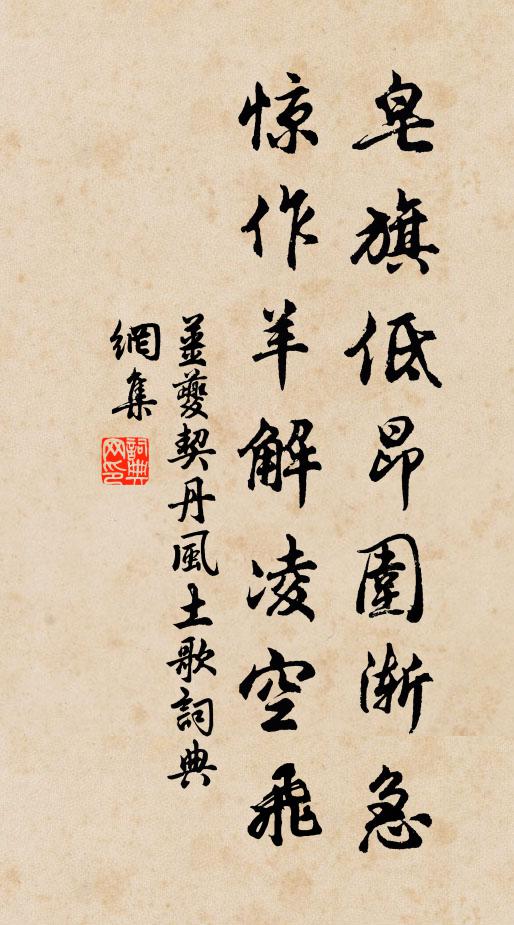 皂旗低昂圍漸急
惊作羊解凌空飛
姜夔契丹風土歌詞典
網集
詞典網印